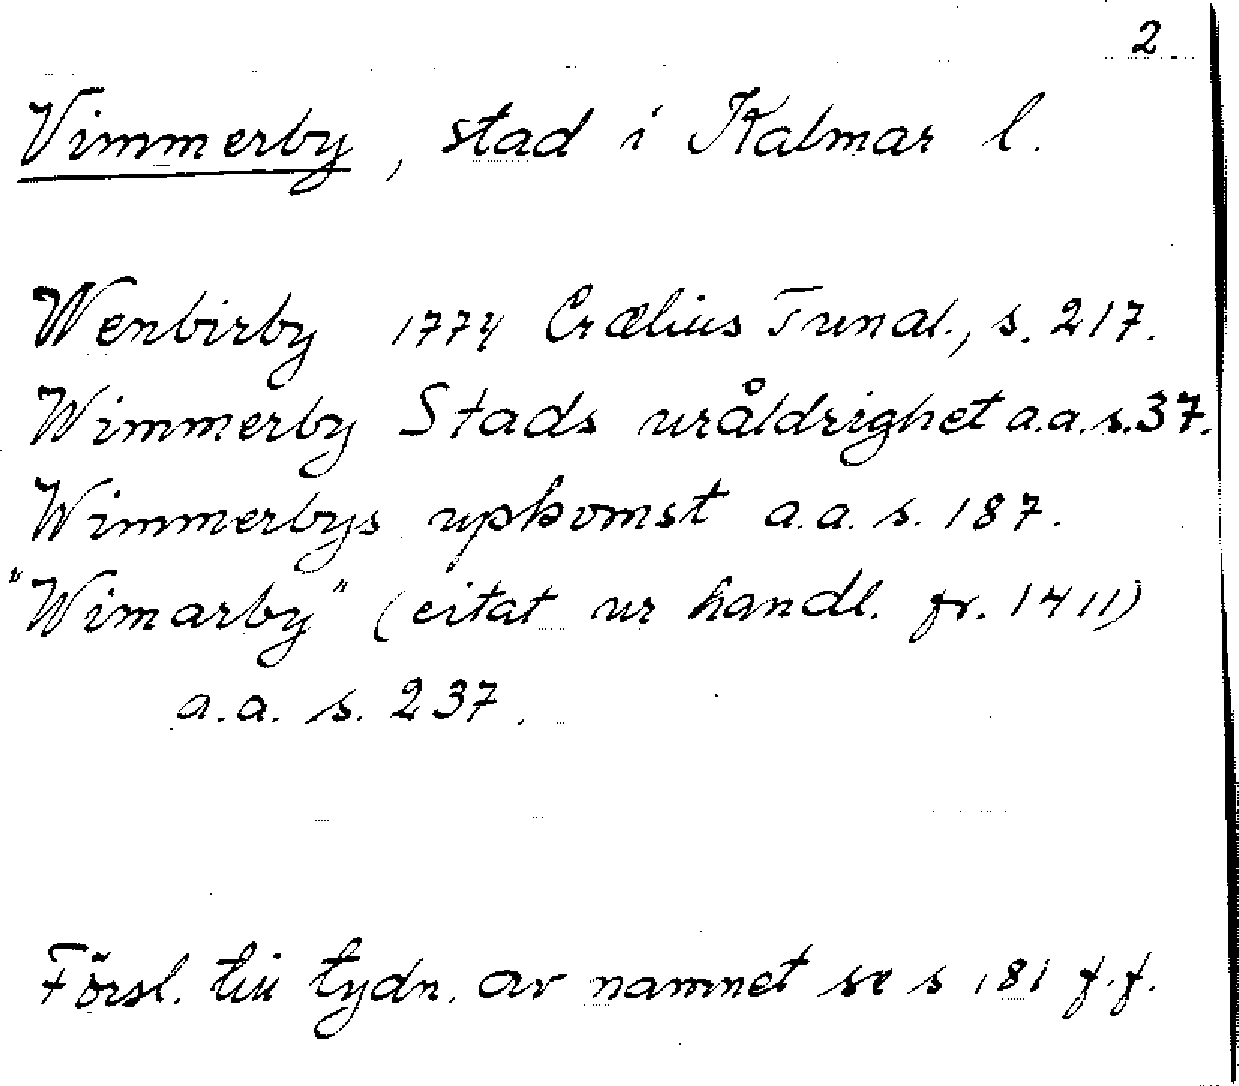 2
Vimmerby, stad i Kalmar l.
Wenbirby 1774 Crælius Tunal., s. 217.
Wimmerby Stads uråldrighet a.a.s.37.
Wimmerbys upkomst a.a. s. 187.
"Wimarby" (citat ur handl. fr. 1411)
a.a. s. 237.
Försl. till tydn. av namnet se s 181 f.f.